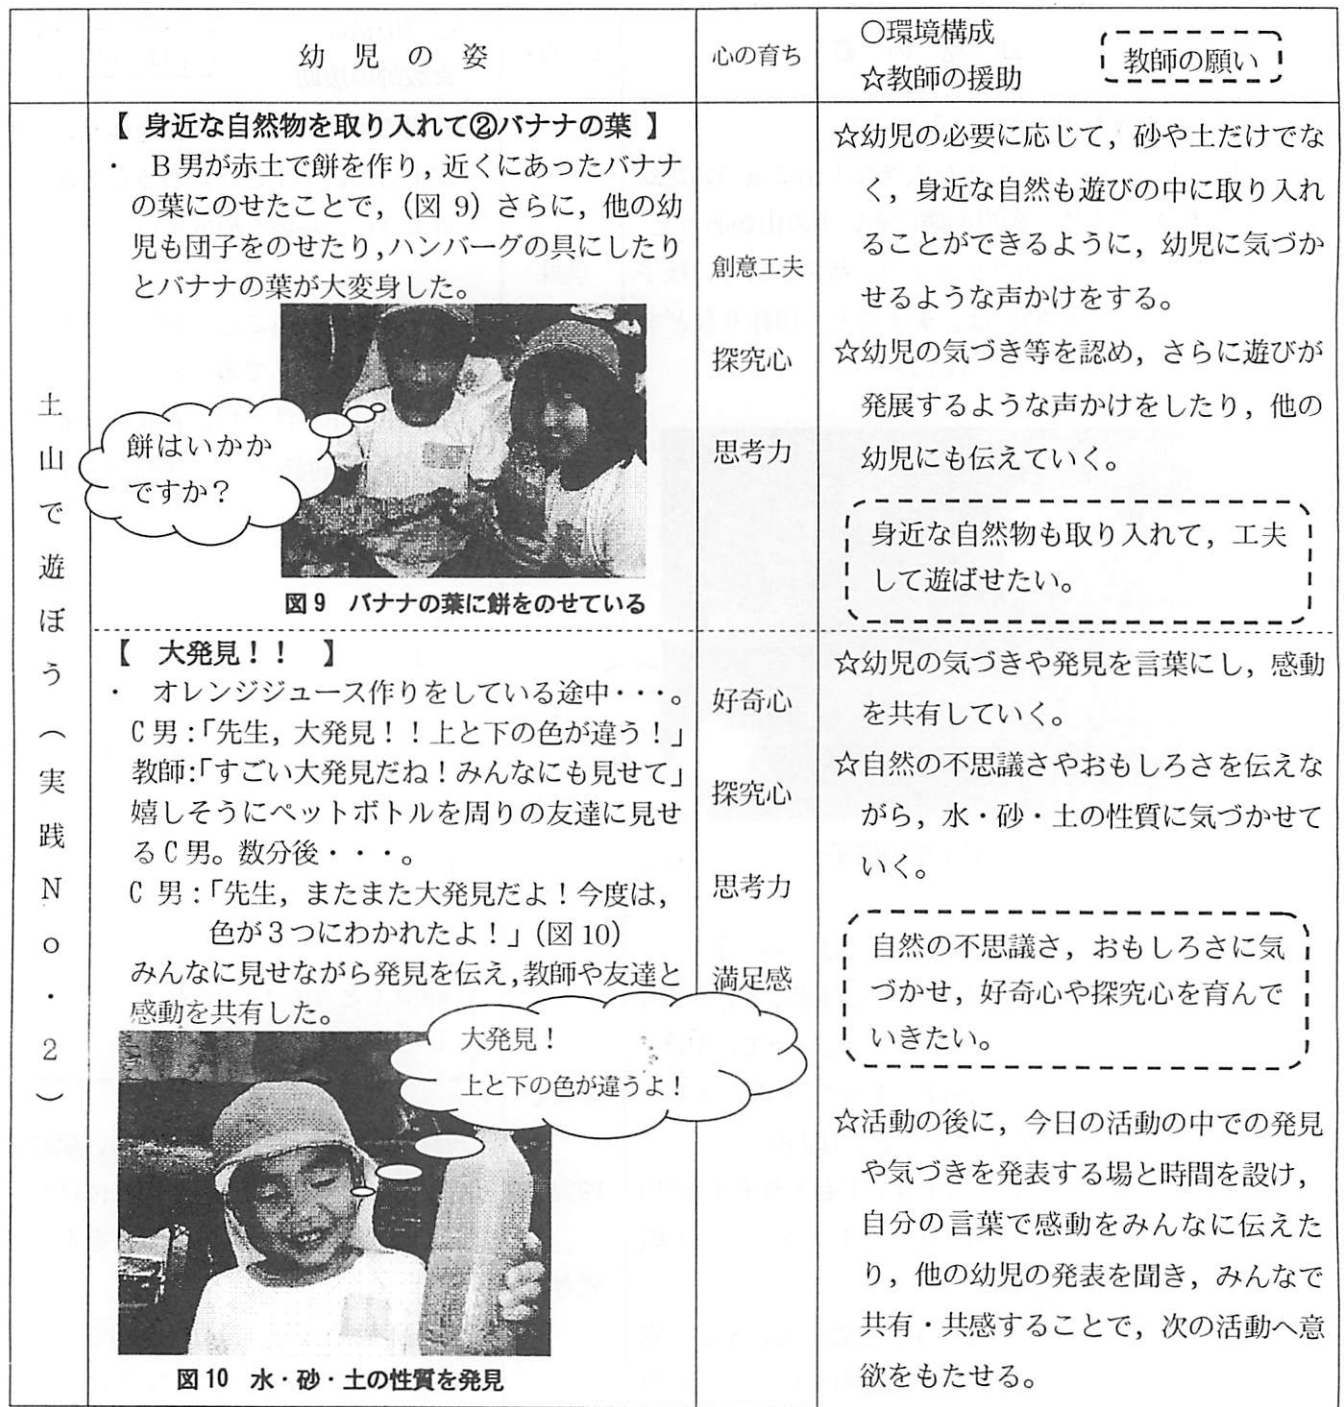 幼児の姿
心の育ち
○環境構成
☆教師の援助
教師の願い
土山で遊ぼう（実践No.2）
【 身近な自然物を取り入れて②バナナの葉 】
・ B男が赤土で餅を作り，近くにあったバナナ
の葉にのせたことで，（図 9）さらに，他の幼
児も団子をのせたり，ハンバーグの具にしたり
とバナナの葉が大変身した。
餅はいかか
ですか？
図9 バナナの葉に餅をのせている
創意工夫
探究心
思考力
☆幼児の必要に応じて，砂や土だけでな
く，身近な自然も遊びの中に取り入れ
ることができるように，幼児に気づか
せるような声かけをする。
☆幼児の気づき等を認め，さらに遊びが
発展するような声かけをしたり，他の
幼児にも伝えていく。
身近な自然物も取り入れて，工夫
して遊ばせたい。
【 大発見！！ 】
・ オレンジジュース作りをしている途中・・・。
C男：「先生，大発見！！上と下の色が違う！」
教師：「すごい大発見だね！みんなにも見せて」
嬉しそうにペットボトルを周りの友達に見せ
るC男。数分後・・・。
C 男：「先生，またまた大発見だよ！今度は，
色が３つにわかれたよ！」（図 10）
みんなに見せながら発見を伝え，教師や友達と
感動を共有した。
大発見！
上と下の色が違うよ！
図10 水・砂・土の性質を発見
好奇心
探究心
思考力
満足感
☆幼児の気づきや発見を言葉にし，感動
を共有していく。
☆自然の不思議さやおもしろさを伝えな
がら，水・砂・土の性質に気づかせて
いく。
自然の不思議さ，おもしろさに気
づかせ，好奇心や探究心を育んで
いきたい。
☆活動の後に，今日の活動の中での発見
や気づきを発表する場と時間を設け，
自分の言葉で感動をみんなに伝えた
り，他の幼児の発表を聞き，みんなで
共有・共感することで，次の活動へ意
欲をもたせる。